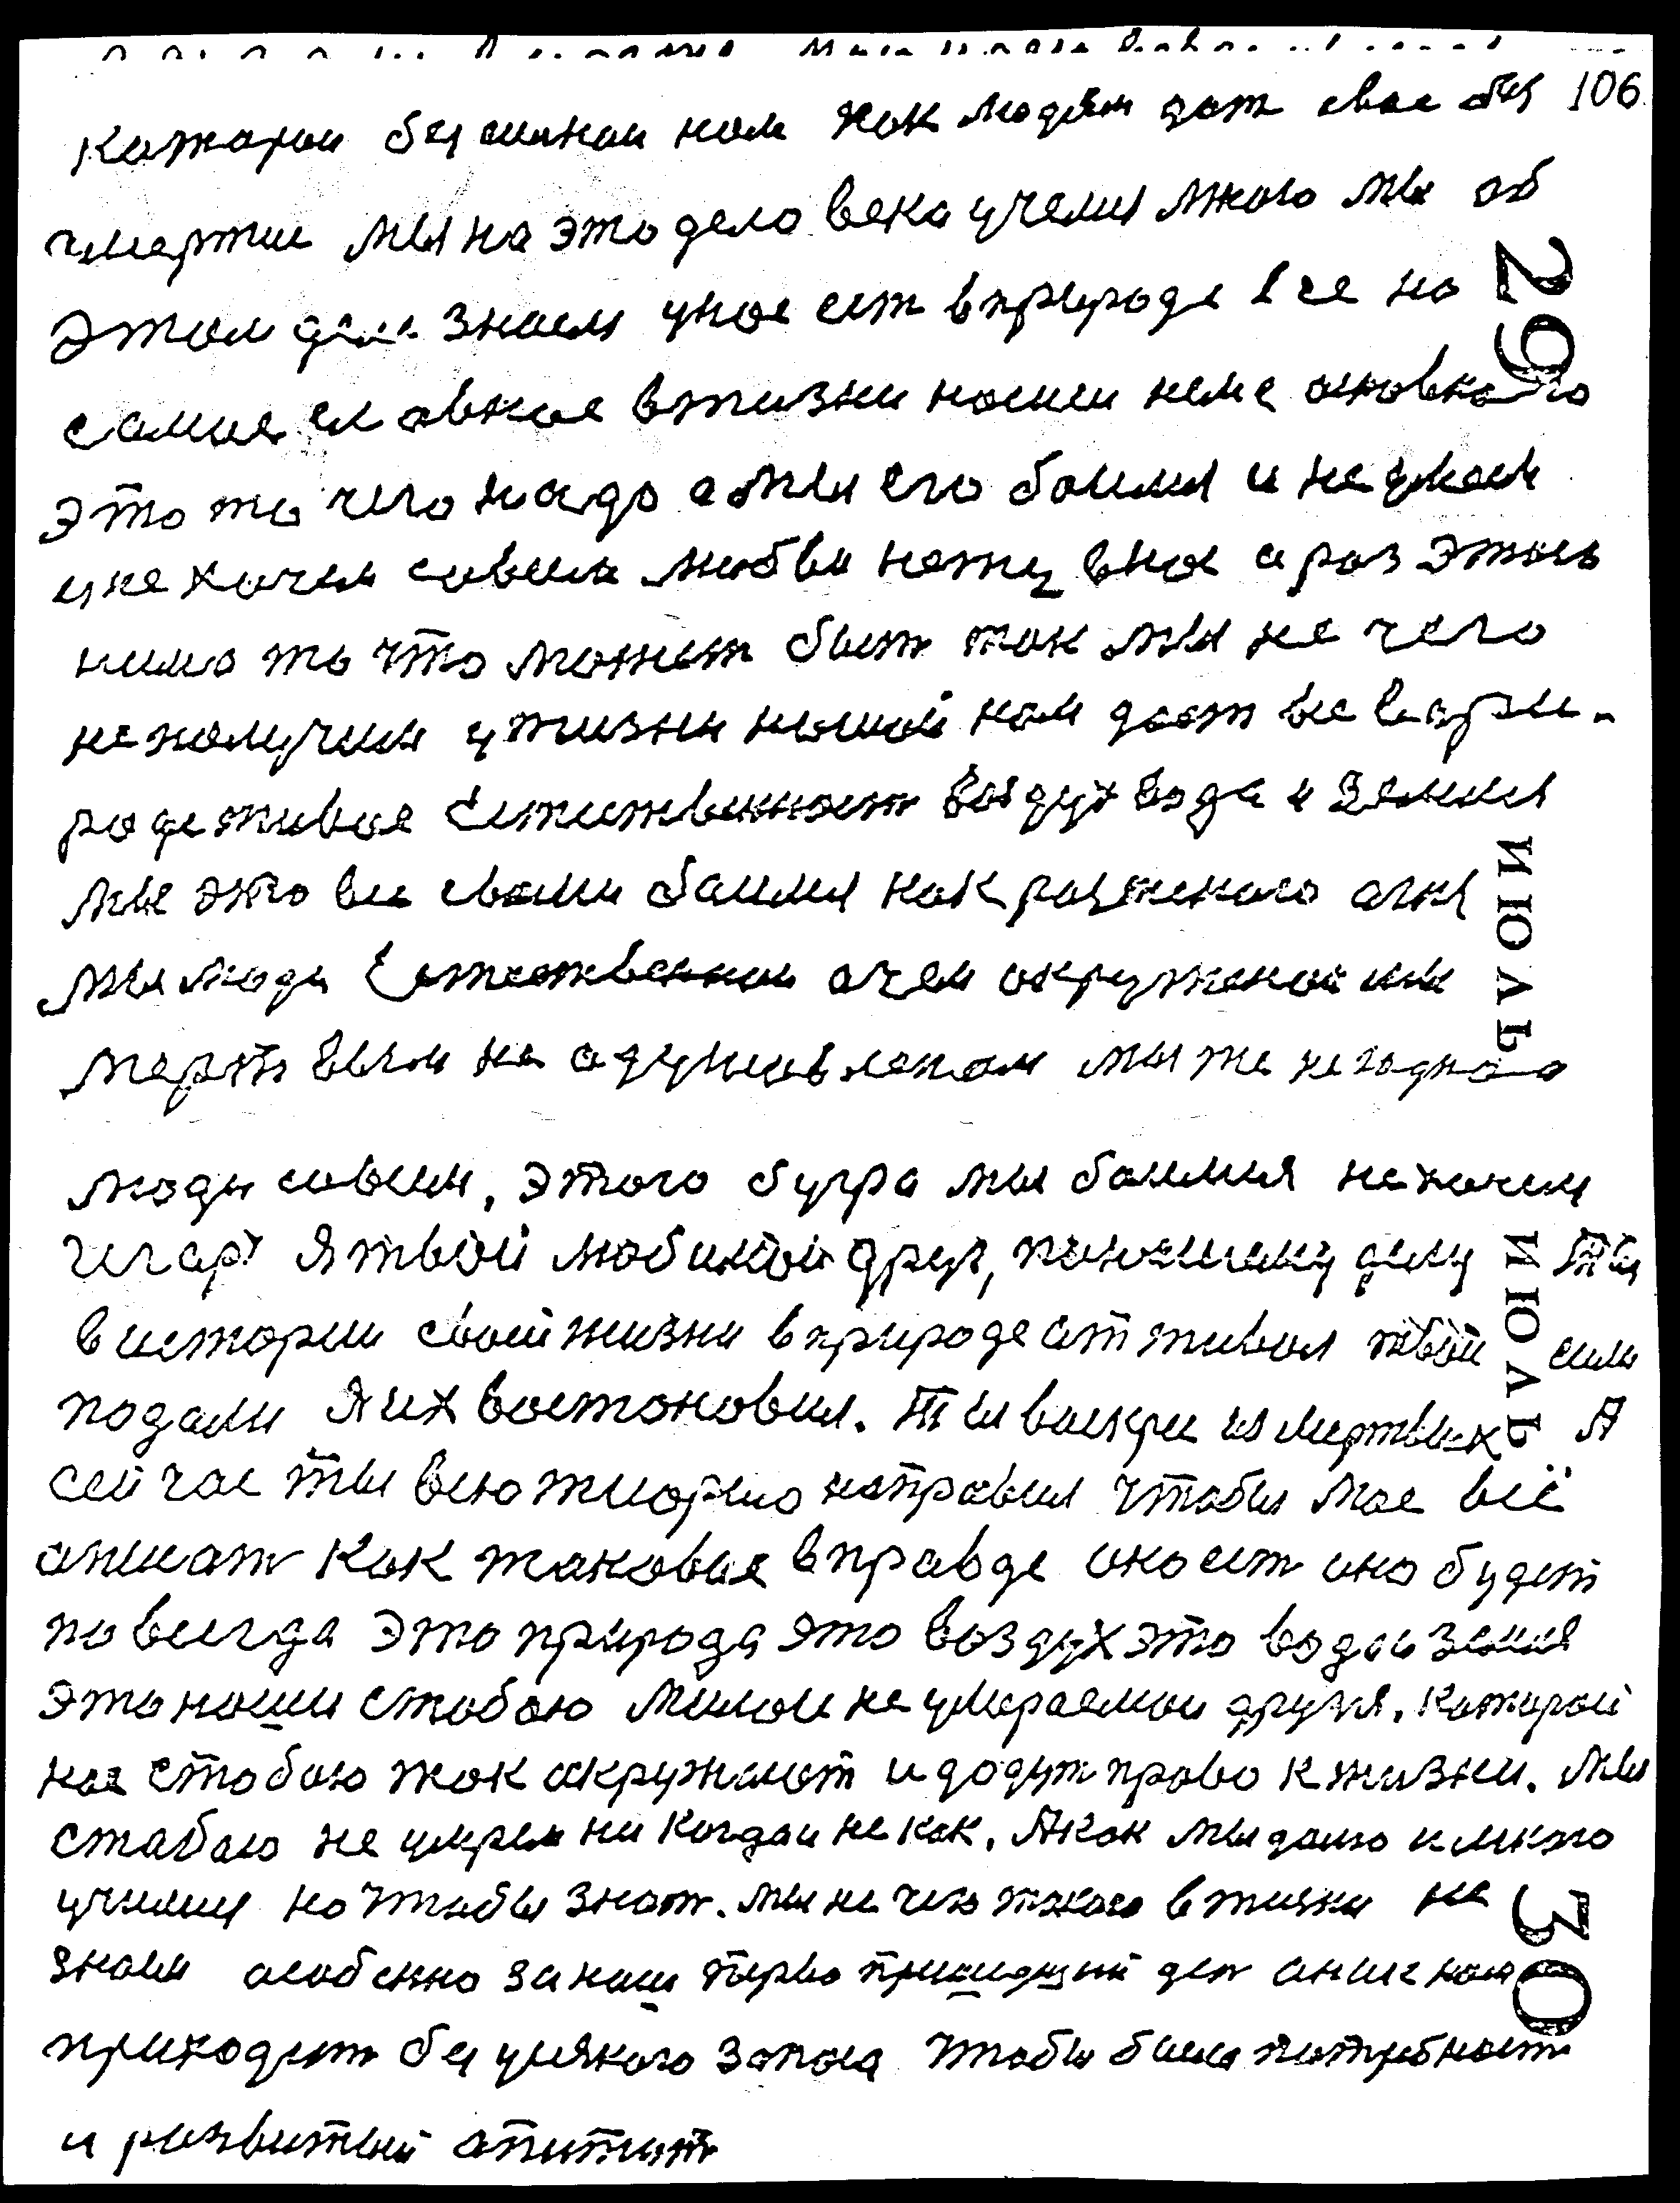 106
которои без силнои нам как людям дат свое без
смертие мы на это дело века учелис много мы об
29
этом деле знаем у нас ест в природе все но
самае главнае в жизни нашеи неме основного
это то чего надо а мы его боимся и не умеем
и не хочем совсем любви нету в нас а раз этого
нимо то что может быт так мы не чего
не получим у жизни нашой нам дает все в при-
роде живое естественност воздух вода и земля
июль
мы это все своми боимся как роженого огня
мы люди естественнои а чем окруженой мы
мерть вым не одушевленом мы же не годного
люди совсем, этого бугра мы боимся не хочем
игар? Я твой любимой друг, по нашему делу ты
июль
в истории своей жизни в природе отживал твои силы
подали Я их востоновил. Ты воскрес из мертвых А
сейчас ты всю теорию направил чтобы мое всё
описат как таковое в правде оно ест оно будет
по всегда это природа это воздух это вода и земля
это наши с тобою милои не умираемои друзя. Которой
нас с тобою так окружают и дадут право к жизни. Мы
с табою не умрем ни когда и не как. А как мы долго и много
училис но чтобы знат. мы не чего такого в жизни не
30
знаем особенно за наш перво приходящий ден он и к нам
приходит без усякого запоса чтобы была потребност
и развитый апитит